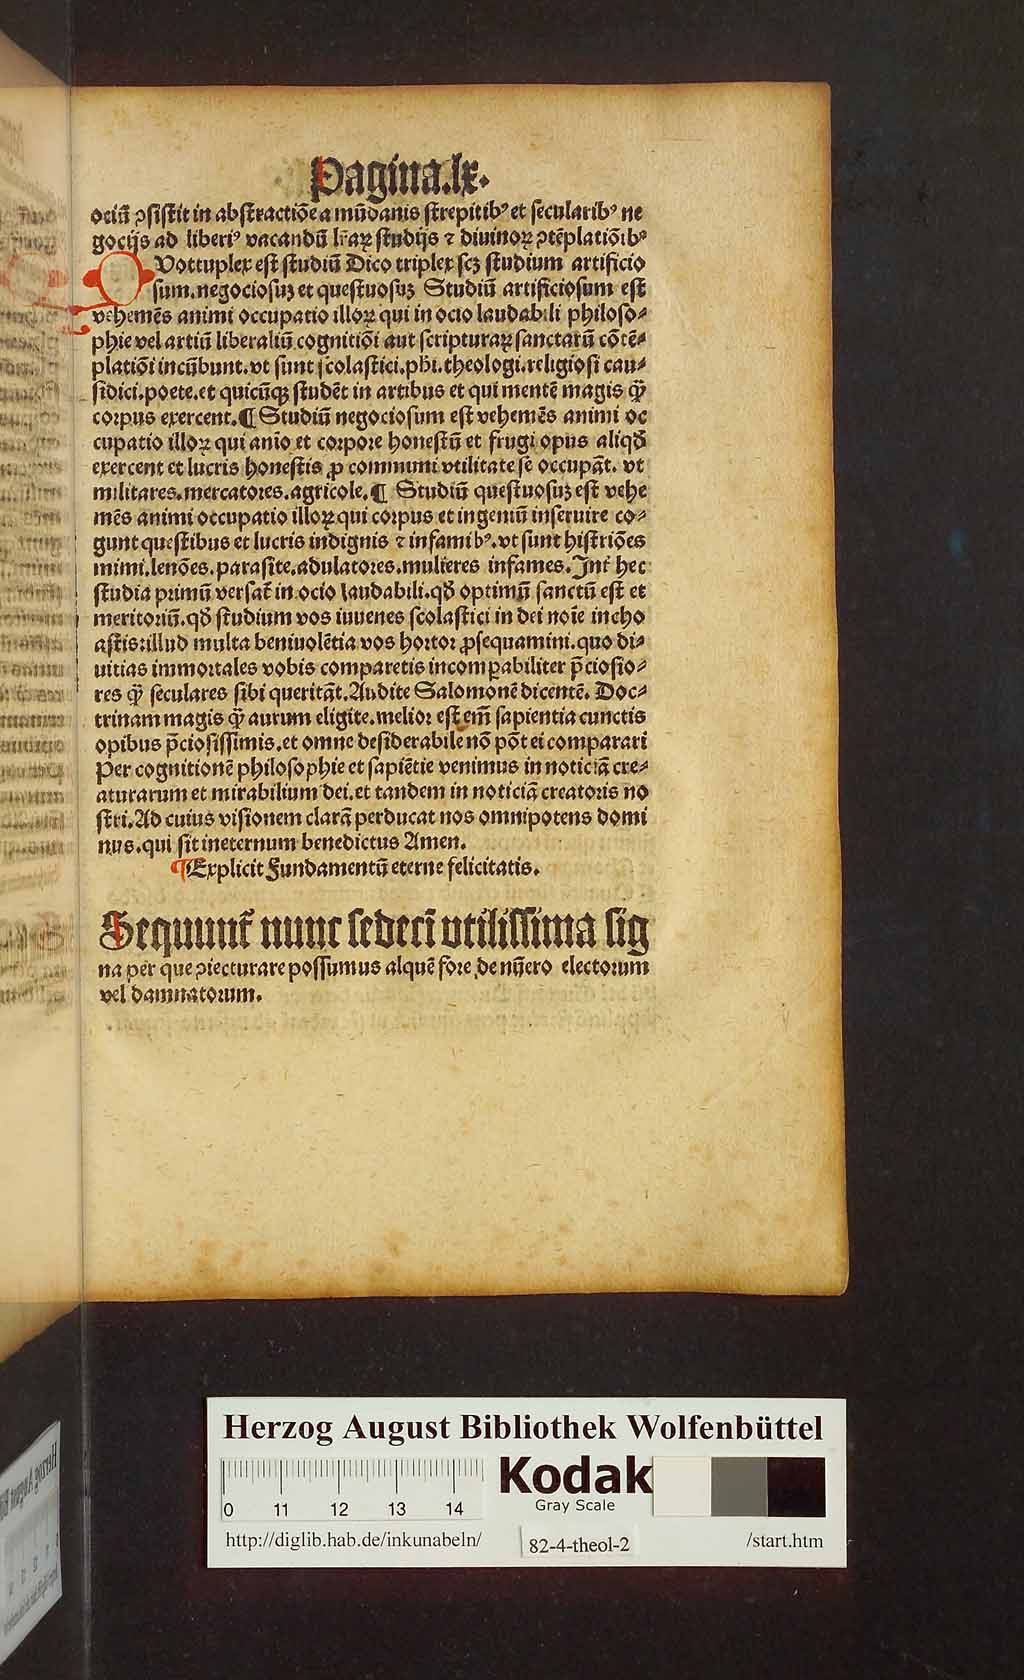 Pagina.lx.
ociū ꝯsistit in abstractiōe a mūdanis strepitibꝰ et secularibꝰ ne
gocijs ad liberiꝰ vacandū lr̄aꝝ studijs ⁊ diuinoꝝ ꝯtēplatiōibꝰ
Quottuplex est studiū Dico triplex scꝫ studium artificio
sum.negociosuꝫ et questuosuꝫ Studiū artificiosum est
vehemēs animi occupatio illoꝝ qui in ocio laudabili philoso⸗
phie vel artiū liberaliū cognitiōi aut scripturaꝝ sanctarū cōtē⸗
platiōi incūbunt.vt sunt scolastici.ph̄i.theologi.religiosi cau⸗
sidici.poete.et quicūqꝫ studēt in artibus et qui mentē magis q̄ꝫ
corpus exercent.¶ Studiū negociosum est vehemēs animi oc
cupatio illoꝝ qui aīo et corpore honestū et frugi opus aliqđ
exercent et lucris honestis ꝓ communi vtilitate se occupāt. vt
militares.mercatores.agricole.¶ Studiū questuosuꝫ est vehe
mēs animi occupatio illoꝝ qui corpus et ingeniū inseruire co⸗
gunt questibus et lucris indignis ⁊ infamibꝰ.vt sunt histriōes
mimi.lenōes.parasite.adulatores.mulieres infames.Int̄ hec
studia primū versat̄ in ocio laudabili.qđ optimū sanctū est et
meritoriū.qđ studium vos iuuenes scolastici in dei noīe incho
astis:illud multa beniuolētia vos hortor ꝓsequamini.quo di⸗
uitias immortales vobis comparetis incomꝑabiliter p̄ciosio⸗
res q̄ꝫ seculares sibi queritāt.Audite Salomonē dicentē. Doc⸗
trinam magis q̄ꝫ aurum eligite.melior est em̄ sapientia cunctis
opibus p̄ciosissimis.et omne desiderabile nō pōt ei comparari
Per cognitionē philosophie et sapiētie venimus in noticiā cre⸗
aturarum et mirabilium dei.et tandem in noticiā creatoris no
stri.Ad cuius visionem clarā perducat nos omnipotens domi
nus.qui sit ineternum benedictus Amen.
¶Explicit Fundamentū eterne felicitatis.
Sequunt̄ nunc sedecī vtilissima sig
na per que ꝯiecturare possumus alquē fore de nūero electorum
vel damnatorum.
Herzog August Bibliothek Wolfenbüttel
0 11 12 13 14
Kodak
Gray Scale
http://diglib.hab.de/inkunabeln/
82-4-theol-2
/start.htm